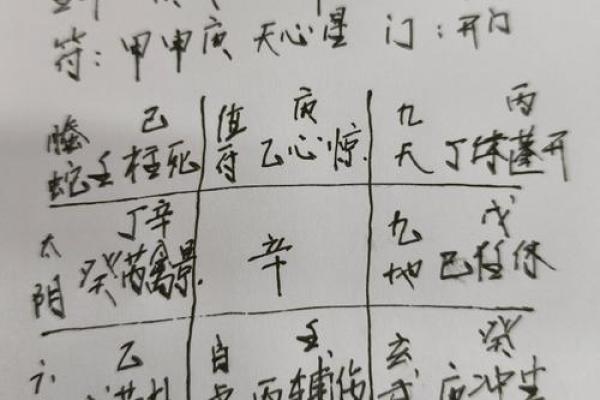 符：甲申庚 天心星 门：开门
己 值 庚 九 丙
螣蛇 壬柱死 符 乙心惊 天 丁 蓬开
丁辛
太阴 癸芮禽景 辛 九地 戊 己任休
六 乙 白 壬 玄 癸
丙辅伤 庚冲生